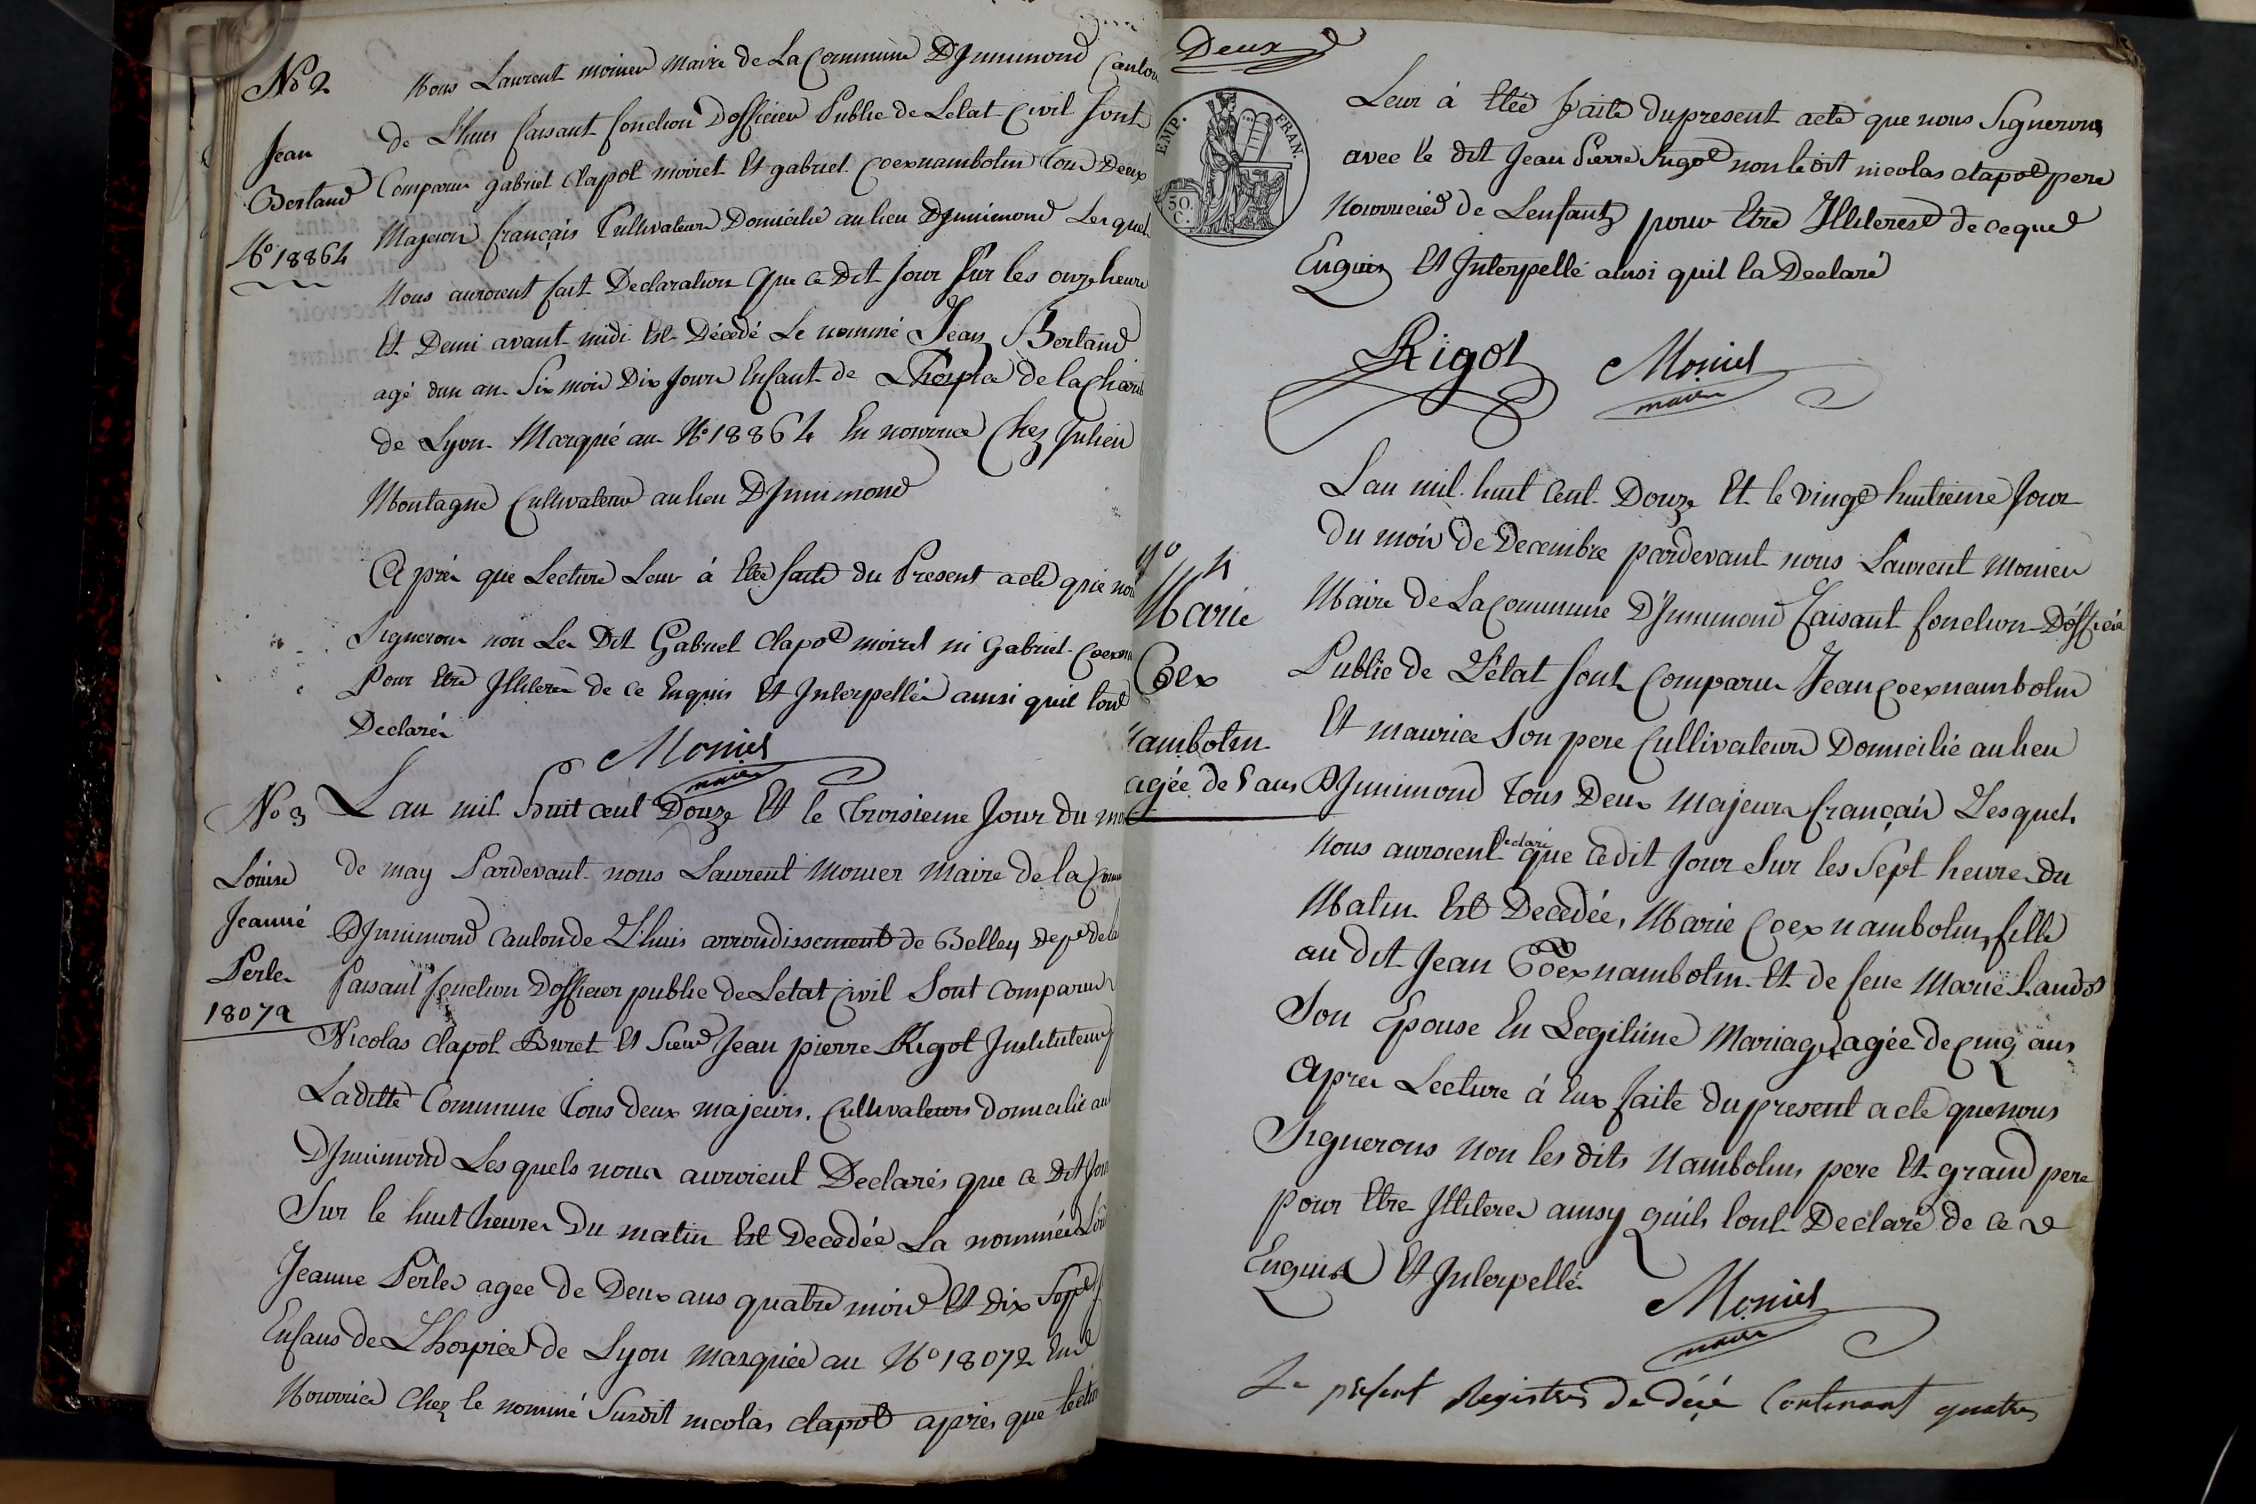 No 2
Jean
Bertand
No 18864
Nous Laurent monier maire de La Commune DJnnimond Canton
de Lhuis faisant fonction Dofficier Public de Letat Civil Sont
Comparu gabriel Clapot moiret Et gabriel Coexnambotin tous Deux
Majeurs français Cultivateurs Domicilié au lieu DJnnimond Lesquel
Nous auroient fait Declaration Que ce Dit jour Sur les onze heure
Et Demi avant midi Est Décedé Le nommé Jean Bertand
agé dun an Six mois Dix Jours Enfant de Lhospice de la Charité
de Lyon Marqué au No 18864 En nourrice Chez Julien
Montagne Cultivateur au lieu DJnnimond
Après que Lecture Leur à Etée faite du Present acte que nous
Signerons non Les Dit Gabriel Clapot moiret ni Gabriel Coexna
Pour Etre Jlliteres de ce Enquis Et Interpellés ainsi quil lont
Declarés
Monier
maire
No 3
Louise
Jeanne
Perle
18072
Lan mil Huit cent Douze Et le troisieme Jour du mois
de may Pardevant nous Laurent Monier Maire de la Comm
DJnnimond canton de Lhuis arrondissement de Belley Depᵗ de La
faisant fonction Dofficier public de Letat Civil Sont Comparus
Nicolas clapot Buret Et Sieur Jean pierre Rigot Instituteur
Laditte Commune tous deux majeurs, Cultivateurs domicilié au
DJnnimond Lesquels nous auroient Declarés que ce Dit Jour
Sur le huit heures Du matin Est Decedée La nommée Loui
Jeanne Perle agee de Deux ans quatre mois Et dix Sept J
Enfans de Lhospice de Lyon marquée au No 18072 En
Nourrice Chez le nommé Susdit nicolas clapot après que lectur
Deux
EMP. FRAN.
50. C.
Leur à Etée faite du present acte que nous Signerons
avec le dit Jean Pierre Rigot non le dit nicolas clapot pere
Nourricier de Lenfant pour Etre Jlliterest de ce que
Enquis Et Interpellé ainsi quil la Declaré
Rigot
Monier
maire
No 4
Marie
Coex
nambotin
agée de 5 ans
Lan mil huit Cent Douze Et le vingt huitieme Jour
du mois de Decembre pardevant nous Laurent Monier
Maire de La Commune DJnnimond faisant fonction Dófficié
Public de Létat Sont Comparu Jean coexnambotin
Et maurice Son pere Cultivateurs Domicilié au lieu
DJnnimond tous Deux Majeurs français Lesquels
Nous auroient Declaré que ce dit Jour Sur les Sept heures du
Matin Est Decedée, Marie Coexnambotin, fille
au dit Jean Coexnambotin Et de feue Marie Landot
Son Epouse En Legitime Mariage, agée de Cinq ans
Apres Lecture à Eux faite du present acte que nous
Signerons non les dits Nambotin, pere Et grand pere
pour Etre Jlliteres ainsy quils lont Declaré de ce
Enquis Et Interpellé
Monier
maire
Le present Registre de décé Contenant quatre